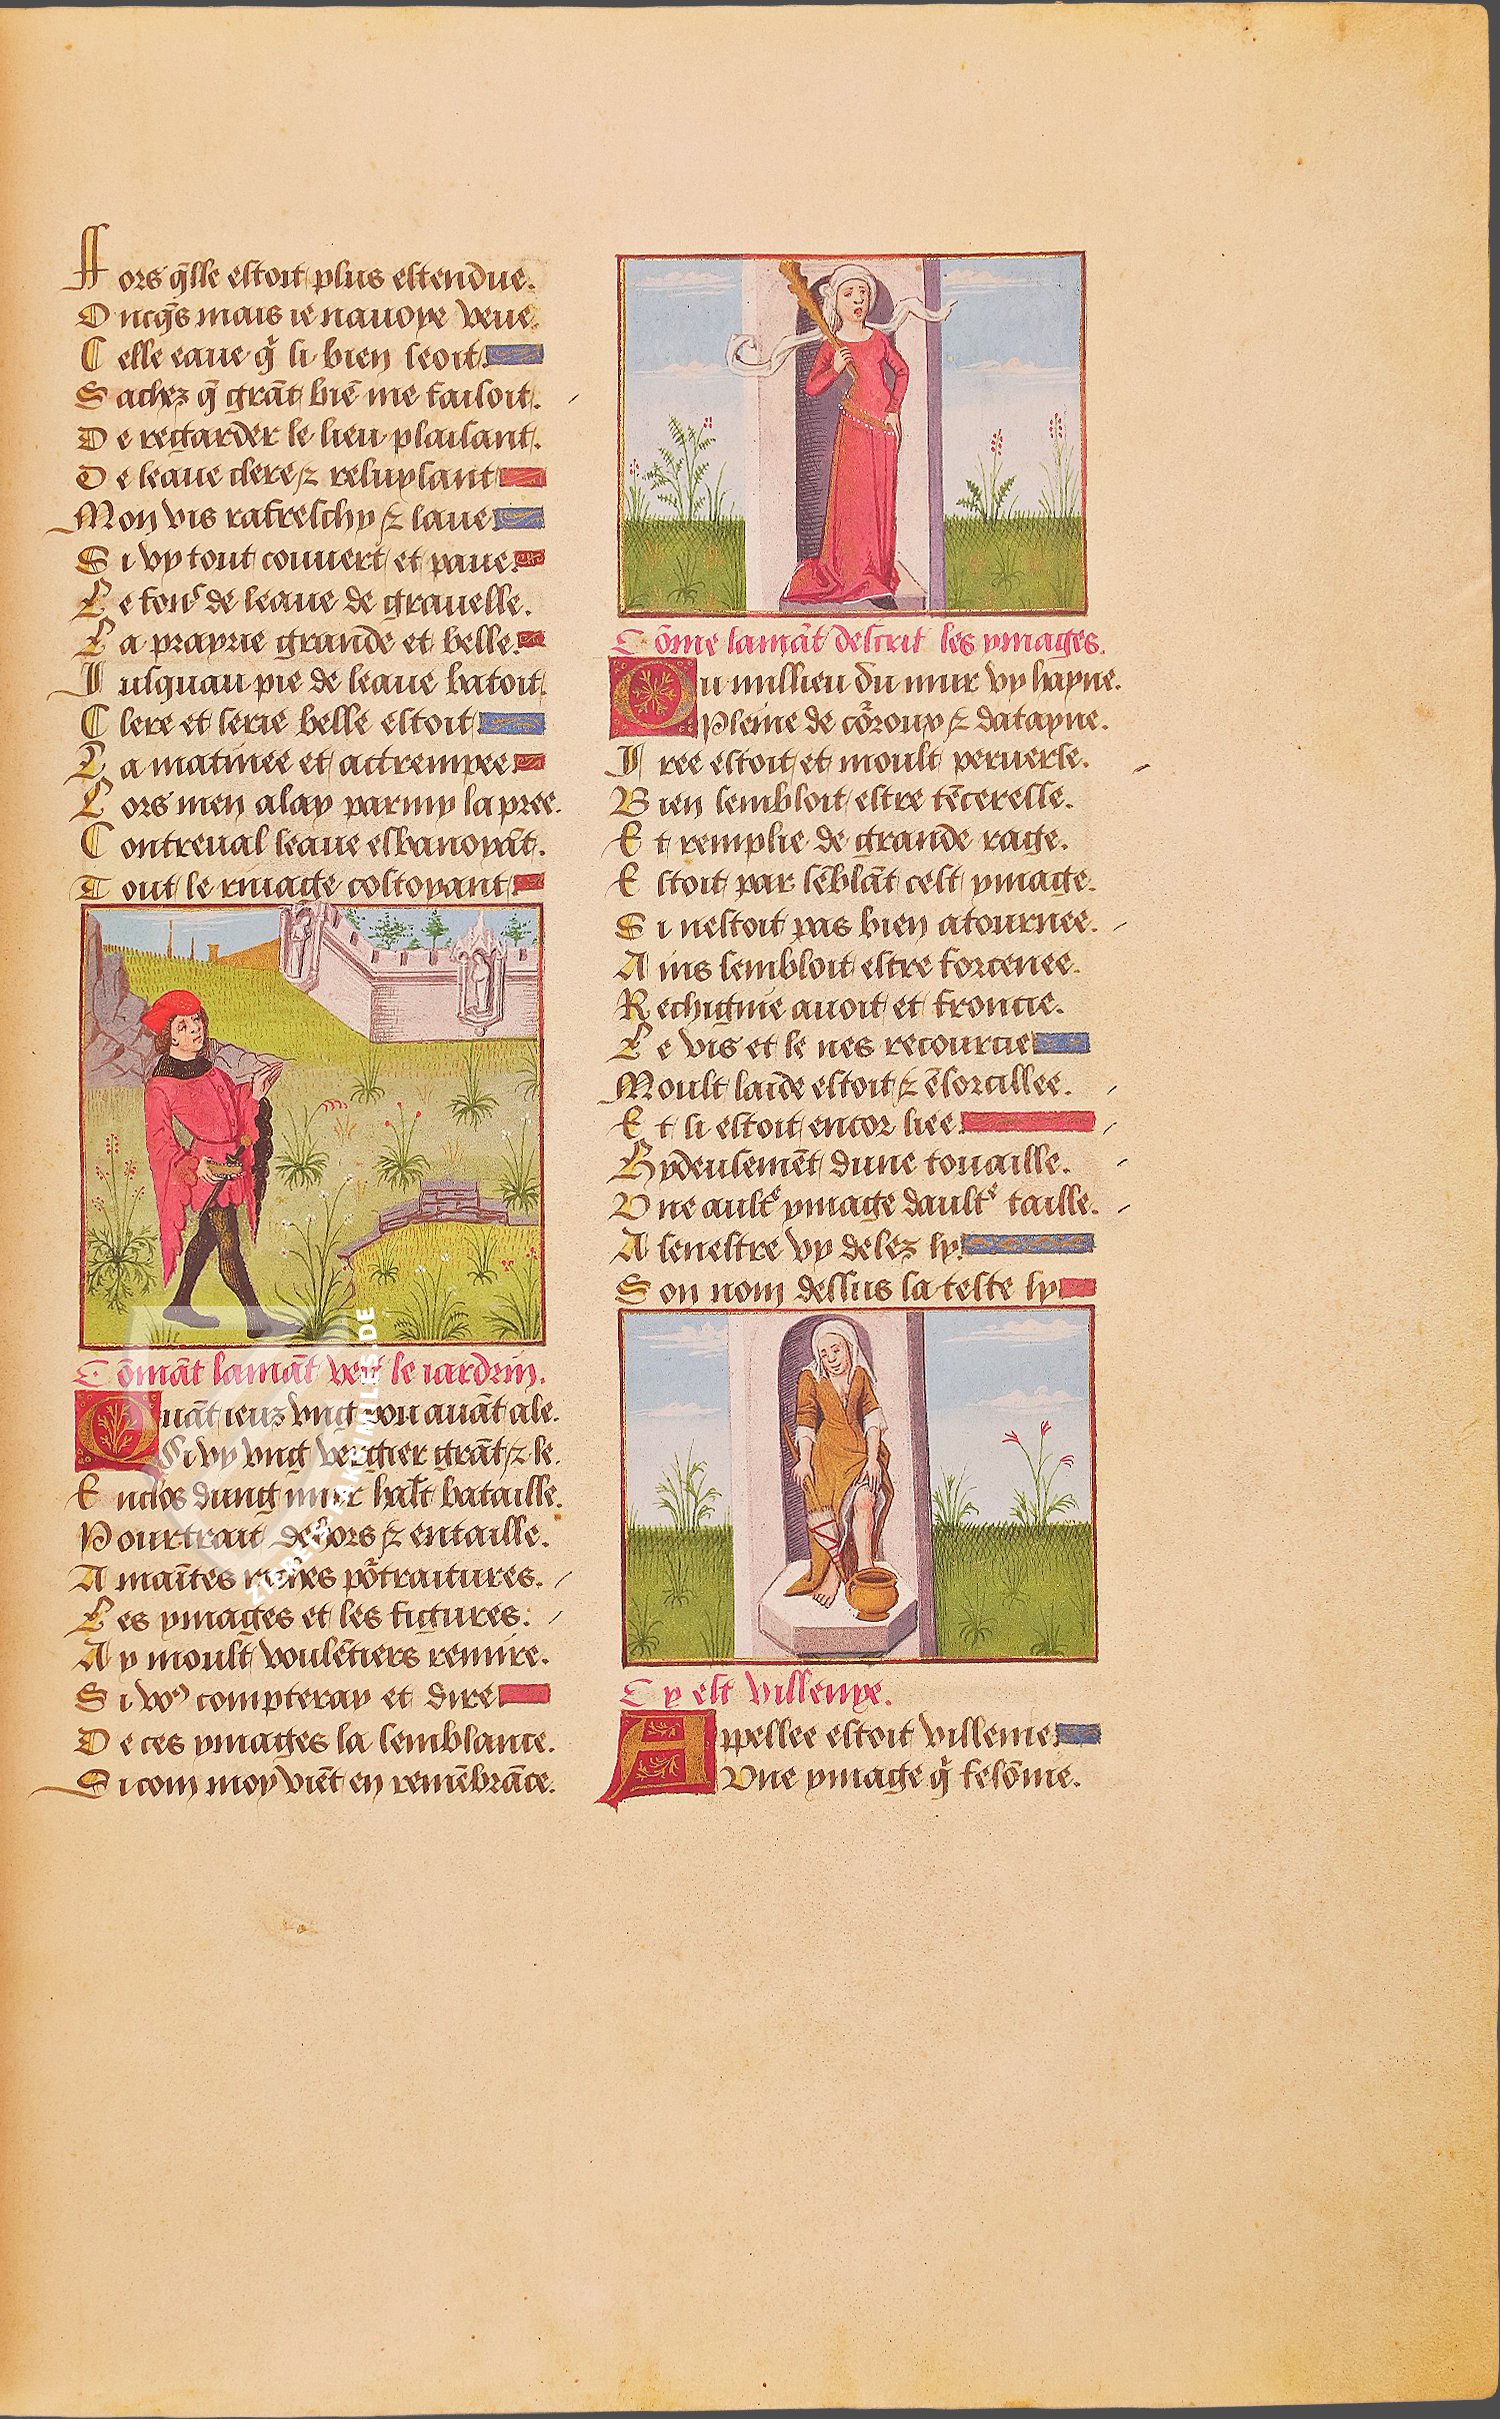 Fors q̃lle estoit plus estendue.
Oncq̃s mais ie nauoye veue.
Celle eaue q̃ si bien seoit.
Sachez q̃ grãt biẽ me faisoit.
De regarder le lieu plaisant.
De leaue clere ⁊ reluysant
Mon vis rafreschy ⁊ laue
Si vy tout couuert et paue.
Le fons de leaue de grauelle.
La praprie grande et belle.
Iusquau pie de leaue batoit.
Clere et serie belle estoit
La matinee et actrempee
Lors men alay parmy la pree.
Contreual leaue esbanoyãt.
Tout le riuage costoyant.
Cõmãt lamãt veit le iardrin.
Quãt ieuz vng pou auãt ale.
Si vy vng vergier grãt ⁊ le.
Enclos dung mur hault bataille.
Pourtrait dehors ⁊ entaille.
A maĩtes riches põtraitures.
Les ymages et les figures.
Ay moult voulẽtiers remire.
Si voꝰ compteray et dire
De ces ymages la semblance.
Si com moy viẽt en remẽbrãce.
Cõme lamãt descrit les ymages.
Ou millieu du mur vy hayne.
Pleine de cõrroux ⁊ datayne.
Iree estoit et moult peruerse.
Bien sembloit estre tẽcerelle.
Et remplie de grande rage.
Estoit par sẽblãt cest ymage.
Si nestoit pas bien atournee.
Ains sembloit estre forcenee.
Rechignie auoit et froncie.
Le vis et le nes recourcie
Moult laide estoit ⁊ ẽsorcillee.
Et si estoit encor liee.
Hydeusemẽt dune touaille.
Vne aultᵉ ymage daultᵉ taille.
A senestre vy delez ly.
Son nom dessus la teste ly
Cy est villenye.
Appellee estoit villenie.
Vne ymage q̃ felõnie.